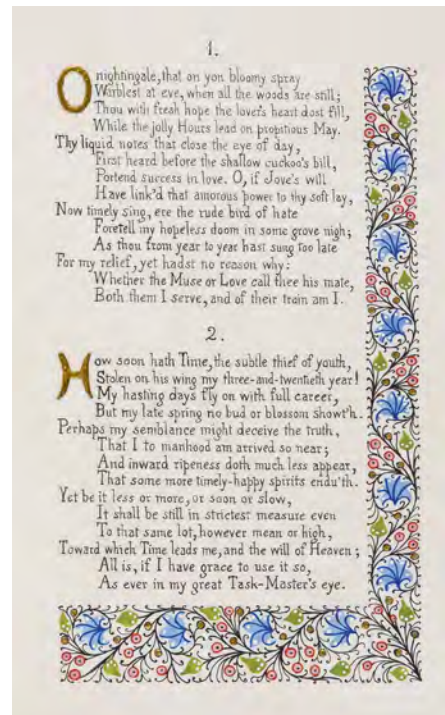 1.
O nightingale, that on yon bloomy spray
Warblest at eve, when all the woods are still;
Thou with fresh hope the lover's heart dost fill,
While the jolly Hours lead on propitious May.
Thy liquid notes that close the eye of day,
First heard before the shallow cuckoo's bill,
Portend success in love. O, if Jove's will
Have link'd that amorous power to thy soft lay,
Now timely sing, ere the rude bird of hate
Foretell my hopeless doom in some grove nigh;
As thou from year to year hast sung too late
For my relief, yet hadst no reason why:
Whether the Muse or Love call thee his mate,
Both them I serve, and of their train am I.
2.
How soon hath Time, the subtle thief of youth,
Stolen on his wing my three-and-twentieth year!
My hasting days fly on with full career,
But my late spring no bud or blossom show'th.
Perhaps my semblance might deceive the truth,
That I to manhood am arrived so near;
And inward ripeness doth much less appear,
That some more timely-happy spirits endu'th.
Yet be it less or more, or soon or slow,
It shall be still in strictest measure even
To that same lot, however mean or high,
Toward which Time leads me, and the will of Heaven;
All is, if I have grace to use it so,
As ever in my great Task-Master's eye.